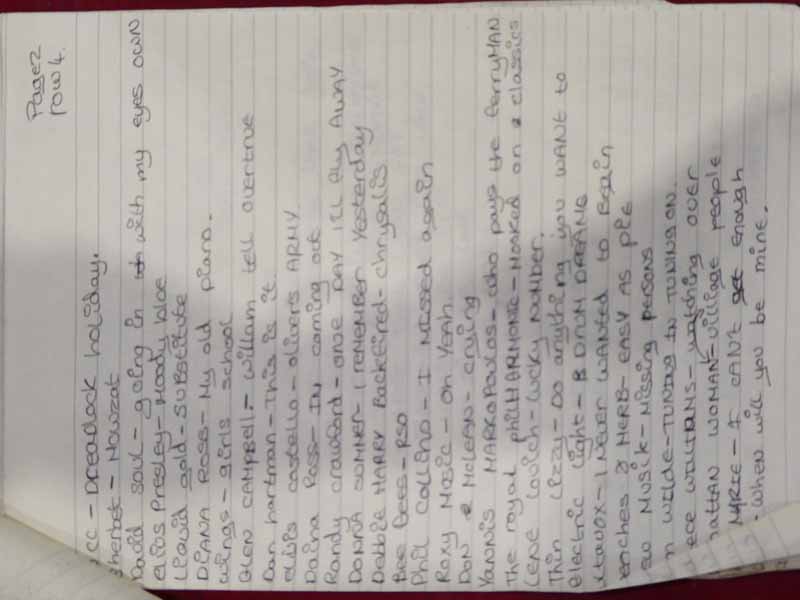 Page 2
row 4.
cc - Dreadlock holiday.
Sherbet - Howzat
David soul - going in with my eyes own
elvis Presley - Moody bloe
Liquid gold - SUBStitute
DIANA ROSS - My old piano.
wings - girls school
GLEN CAMPBell - William tell overtrue
Dan hartman - This is it
elvis costello - olivers ARMY
Daina Ross - IM coming out
Randy crawford - ONE DAY ILL fly AWAY
DONNA SUMMER - I reMEMBER Yesterday
Debbie HARRY Backfired - chrysalis
Bee Gees - RSO
Phil collins - I MISSED again
Roxy Music - oh Yeah.
Don McLEAN - crying
Yannis MARKOPOULOS - who pays the ferryMAN
The royal philHARMONIC - Hooked on classics
Lene lovich - lucky NUMBER.
Thin Lizzy - Do anything you WANT to
electric light - DREAMS
ltavox - I Never WANTED to Begin
& HERB - EASY AS PIE
Musik - Missing persons
n WILDE - TUNING IN TUNING ON.
ece WILLIAMS - watching over
hattan WOMAN - village people
- I CAN'T get enough
- When will you be mine.